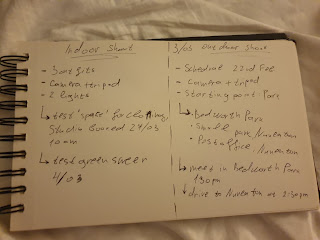 Indoor Shoot
- 3 outfits
- Camera + tripod
- 2 lights
↳ test 'space' for clothing,
Studio 24/03
10am
↳ test green
4/03
3/03 Outdoor Shoot
- 22nd Feb
- Camera + tripod
- Starting point: Park
↳ bedworth Park
- Small park, Nuneaton
- Post office, Nuneaton
↳ meet in bedworth Park
1:30pm
↳ drive to Nuneaton at 2:30pm